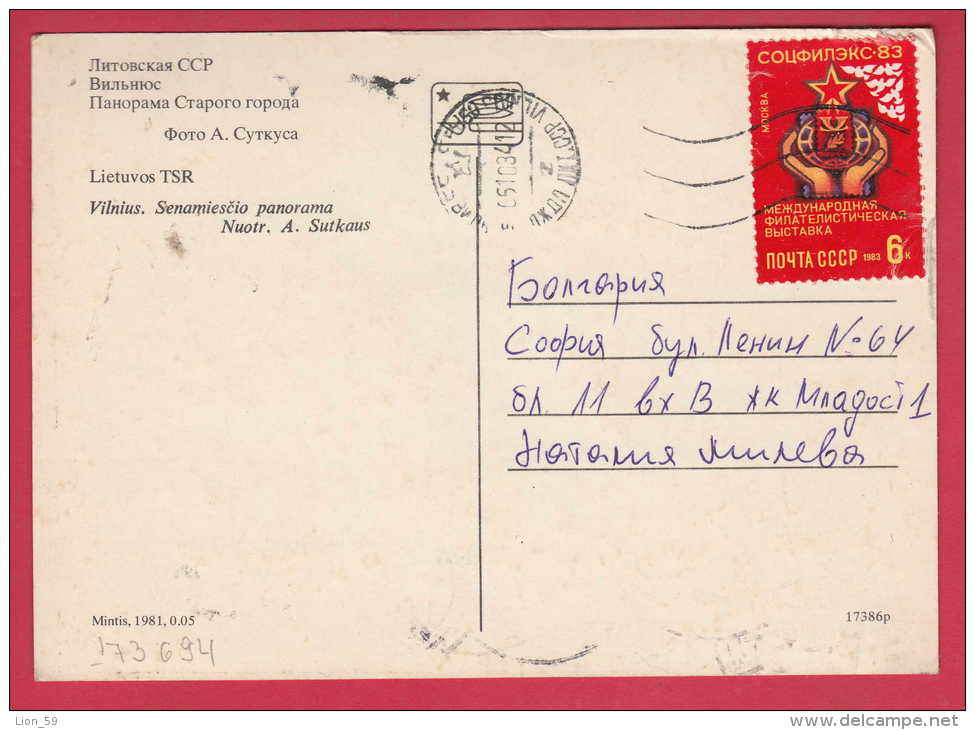 Литовская ССР
Вильнюс
Панорама Старого города
Фото А. Суткуса
Lietuvos TSR
Vilnius. Senamiesčio panorama
Nuotr. A. Sutkaus
СОЦФИЛЭКС·83
МОСКВА
МЕЖДУНАРОДНАЯ
ФИЛАТЕЛИСТИЧЕСКАЯ
ВЫСТАВКА
ПОЧТА СССР 1983 6к
Болгария
София бул. Ленин № 64
бл. 11 вх В жк Младост 1
Наталия Милева
Mintis, 1981, 0.05
17386р
173 694
Lion_59
www.delcampe.net